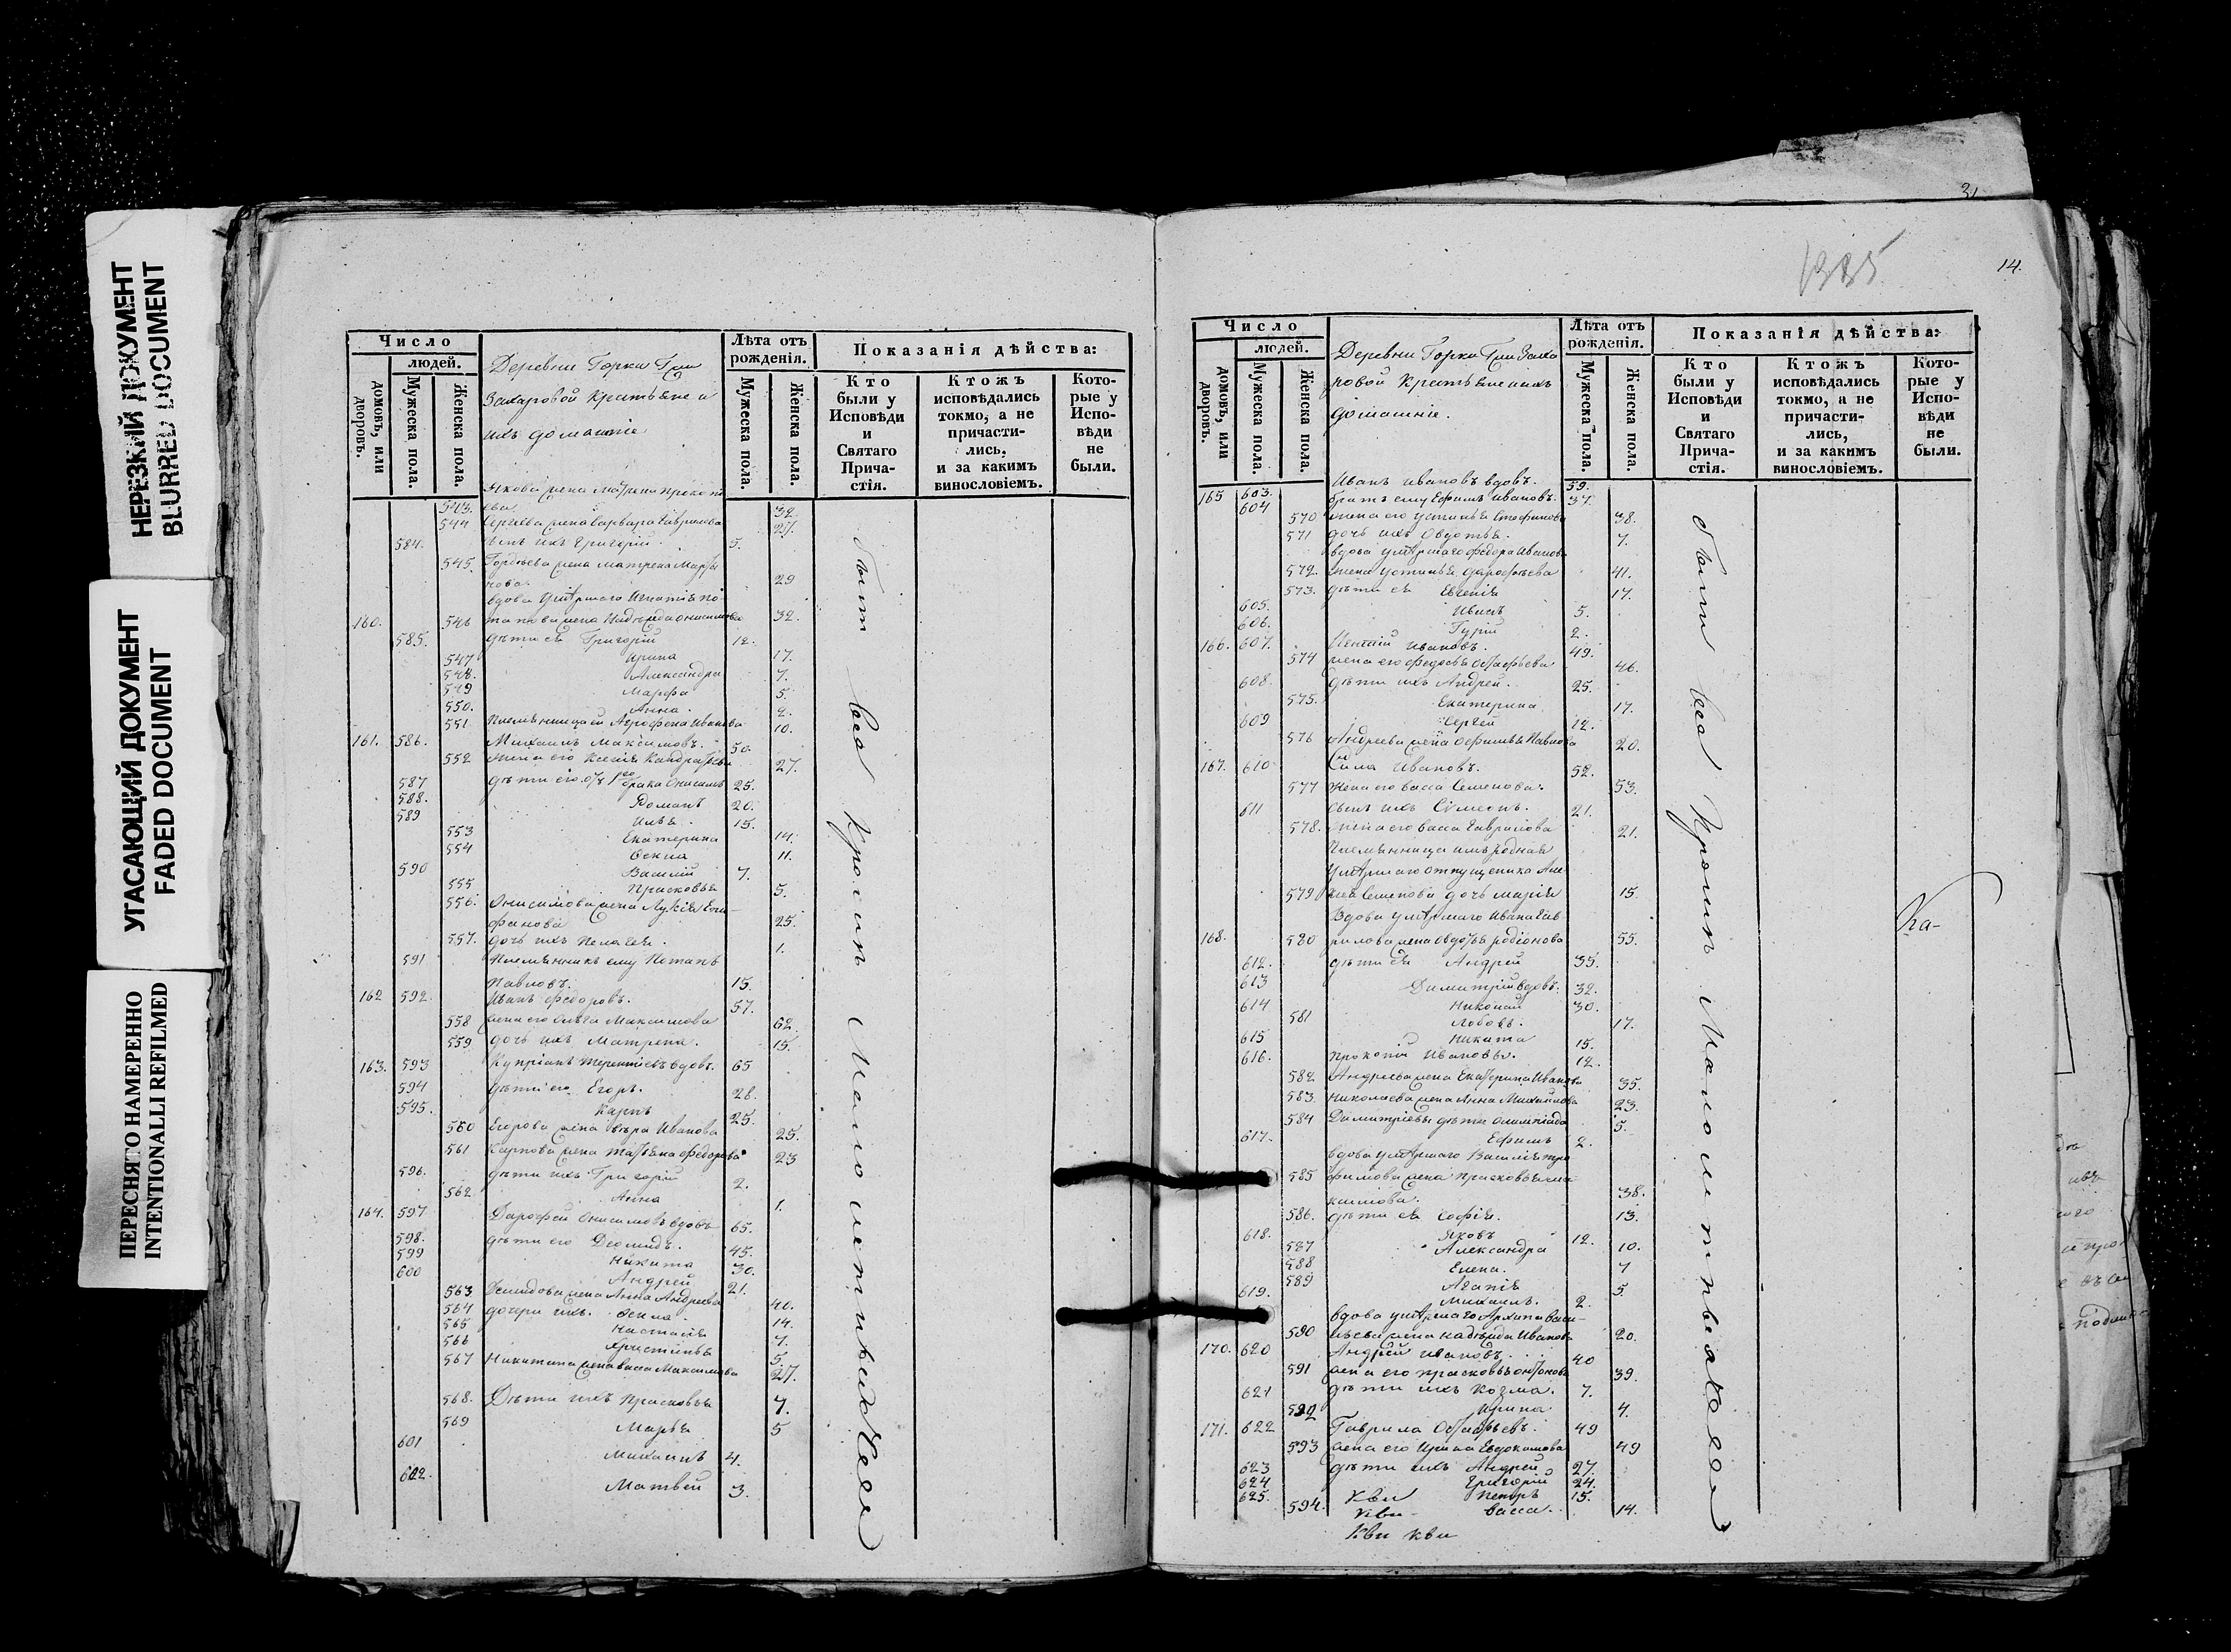 НЕРЕЗКИЙ ДОКУМЕНТ
BLURRED DOCUMENT
УГАСАЮЩИЙ ДОКУМЕНТ
FADED DOCUMENT
ПЕРЕСНЯТО НАМЕРЕННО
INTENTIONALLI REFILMED
Число
людей.
домовъ, или дворовъ.
Мужеска пола.
Женска пола.
Деревни Горки
Захаровой Крестьяне и
ихъ домашніе
Лѣта отъ рожденія.
Мужеска пола.
Женска пола.
Показанія дѣйства:
Кто были у Исповѣди и Святаго Прича-стія.
Ктожъ исповѣдались токмо, а не причасти-лись, и за какимъ винословіемъ.
Кото-рые у Испо-вѣди не были.
543. 32.
544 Сергѣева жена Варвара Гаврилова 27.
584. сынъ ихъ Григорій. 5.
545. Гордѣева жена Матрена
29
вдова умершаго Игнатія По-
160. 546 тапова жена Надежда Онисимова 32.
585. дѣти ея Григорій 12.
547 Ирина 17.
548. Александра 7.
549 Марфа 5.
550. Анна 2.
551 Племянница ей Агрофена Иванова 10.
161. 586. Михаилъ Максимовъ. 50.
552 жена его Ксенія Кандратьева 27.
587 дѣти его отъ 1го брака Онисимъ 25.
588. Романъ 20.
589 Илья. 15.
553 Екатерина 14.
554 Фекла 11.
590 Василій 7.
555 Прасковья 5.
556. Онисимова жена Лукія Епи-
фанова 25.
557. дочь ихъ Пелагея. 1.
591 Племянникъ ему Потапъ
Павловъ. 15.
162 592. Иванъ Федоровъ. 57.
558 жена его Ольга Максимова 62.
559 дочь ихъ Матрена. 15.
163. 593 Купріянъ Терентіевъ вдовъ. 65
594 дѣти его Егоръ. 28.
595. Карпъ 25.
560 Егорова жена Вѣра Иванова 25.
561 Карпова жена Татьяна Федорова 23
596. дѣти ихъ Григорій 2.
562. Анна 1.
164. 597 Дарофей Онисимовъ вдовъ 65.
598. дѣти его Деомидъ. 45.
599 Никита 30.
600 Андрей 21.
563 Демидова жена Анна Андреева 40.
564 дочери ихъ. Фекла. 14.
565 Настасія 7.
566 Христинья 5.
567 Никитина жена Васса Максимова 27.
568. Дѣти ихъ Прасковья 7.
569 Марья 5
601 Михаилъ 4.
602. Матвей 3.
были всѣ Кромѣ Малолетнихъ
14.
Число
людей.
домовъ, или дворовъ.
Мужеска пола.
Женска пола.
Деревни Горки Заха
ровой Крестьяне и ихъ
домашніе.
Лѣта отъ рожденія.
Мужеска пола.
Женска пола.
Показанія дѣйства:
Кто были у Исповѣди и Святаго Прича-стія.
Ктожъ исповѣдались токмо, а не причасти-лись, и за какимъ винословіемъ.
Кото-рые у Испо-вѣди не были.
165 603. Иванъ Ивановъ вдовъ. 59.
604 братъ ему Ефимъ Ивановъ. 37.
570 жена его Устинья Стефанова 38.
571 дочь ихъ Овдотья. 7.
вдова умершаго Федора Иванова
572. жена Устинья Дарофѣева 41.
573. дѣти ея Евгенія 17.
605. Иванъ 5.
606. Гурій 2.
166. 607. Ивановъ. 49.
574 жена его Федосья Остафьева 46.
608. дѣти ихъ Андрей. 25.
575. Екатерина 17.
609 Сергей 12.
576 Андреева жена Офимья Павлова 20.
167. 610 Сила Ивановъ. 52.
577 Жена его Васса Семенова. 53.
611 сынъ ихъ Сѵмеонъ. 21.
578. жена его Васса Гаврилова 21.
Племянница имъ родная
умершаго отпущеника Але
579 ксѣя Семенова дочь Марія 15.
Вдова умершаго Ивана Гав-
168. 580 рилова жена Овдотья Родіонова 55.
612. дѣти ея Андрей 35.
613 Димитрій вдовъ. 32.
614 Николай 30.
581 Любовь. 17.
615 Никита 15.
616. Прокопій Ивановы. 12.
582 Андреева жена Екатерина Иванова 35.
583 Николаева жена Анна Михайлова 23.
584 Димитріевы дѣти Олимпіада 5.
617. Ефимъ 2.
вдова умершаго Василья Тро
585 фимова жена Прасковья Ма-
ксимова. 38.
586. дѣти ея Софія. 13.
618. Яковъ 12.
587 Александра 10.
588 Елена. 7
589 Агапія 5
619. Михаилъ. 2.
вдова умершаго Архипа Васи-
590 льева жена Надежда Иванова 20.
170. 620 Андрей Ивановъ. 40
591 жена его Прасковья Онтонова 39.
621 дѣти ихъ Козма. 7.
592 Ирина 4.
171. 622 Гаврила Остафьевъ. 49
593 жена его Ирина Евдокимова 49
623 дѣти ихъ Андрей 27.
624 Григорій 24.
625. Петръ 15.
594. Васса. 14.
были всѣ Кромѣ Малолетнихъ
Ка-